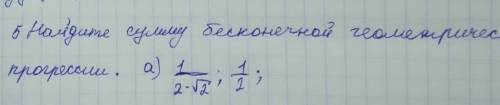 5 Найдите сумму бесконечной геометричес
прогрессии. а) 1/(2-√2); 1/2;